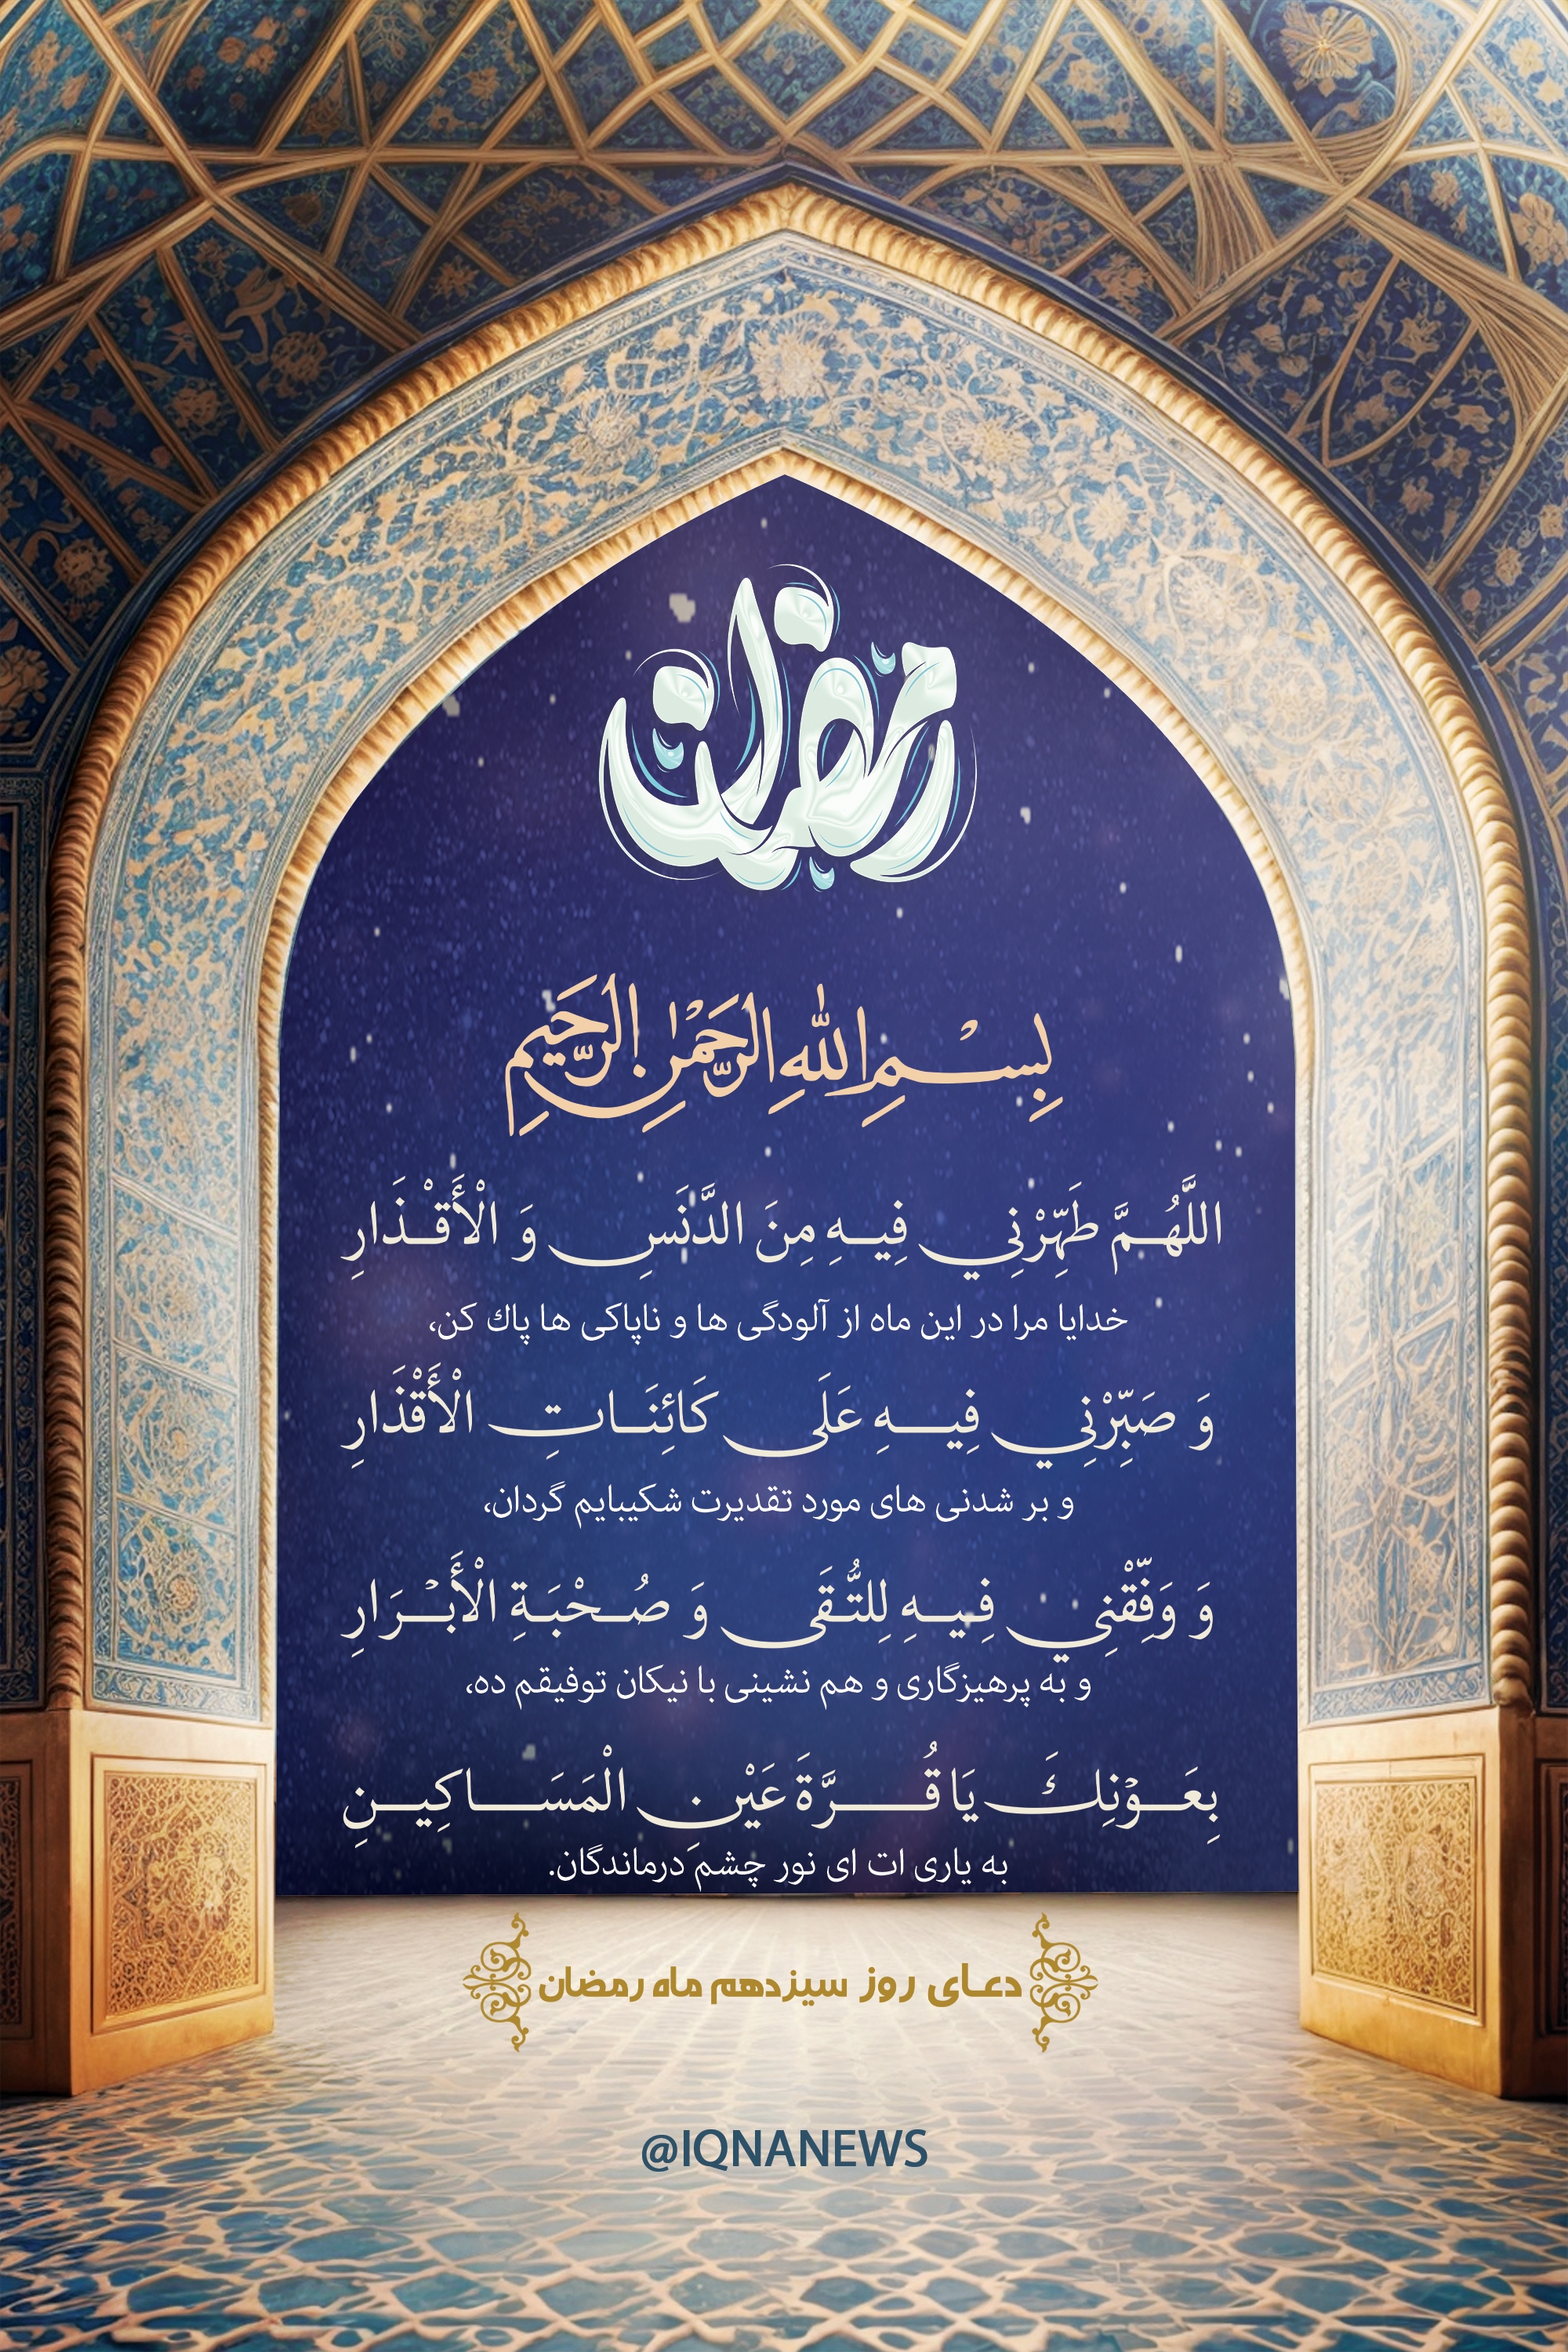 رمضان
بِسْمِ اللهِ الرَّحْمٰنِ الرَّحِيمِ
اللَّهُمَّ طَهِّرْنِي فِيهِ مِنَ الدَّنَسِ وَ الْأَقْذَارِ
خدایا مرا در این ماه از آلودگی ها و ناپاکی ها پاك کن،
وَ صَبِّرْنِي فِيهِ عَلَى كَائِنَاتِ الْأَقْدَارِ
و بر شدنی های مورد تقدیرت شکیبایم گردان،
وَ وَفِّقْنِي فِيهِ لِلتُّقَى وَ صُحْبَةِ الْأَبْرَارِ
و به پرهیزگاری و هم نشینی با نیکان توفیقم ده،
بِعَوْنِكَ يَا قُرَّةَ عَيْنِ الْمَسَاكِينِ
به یاری ات ای نور چشم درماندگان.
دعای روز سیزدهم ماه رمضان
@IQNANEWS